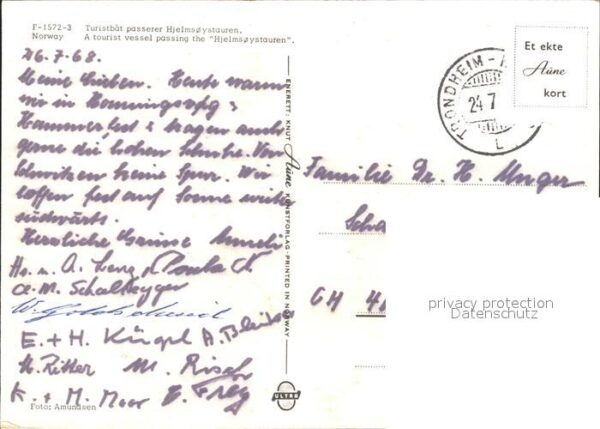 F-1572-3 Turistbåt passerer Hjelmsøystauren.
Norway A tourist vessel passing the "Hjelmsøystauren".
26.7.68.
Meine Lieben. Heute waren
wir in Honningsvåg &
Hammerfest & tragen auch
gerne die hohen Schuhe. Vom
Schwitzen keine Spur. Wir
hoffen fest auf Sonne weiter
südwärts.
Herzliche Grüsse
W. Goldschmid
E. + H. Küngl A.
H. Ritter M. Risch
K. + M. Moor E. Frey
Foto: Amundsen
ENERETT: KNUT Aune KUNSTFORLAG - PRINTED IN NORWAY
ULTRA
TRONDHEIM
24.7
L
Et ekte
Aune
kort
Familie Dr. H. Unger
Scha
CH
privacy protection
Datenschutz